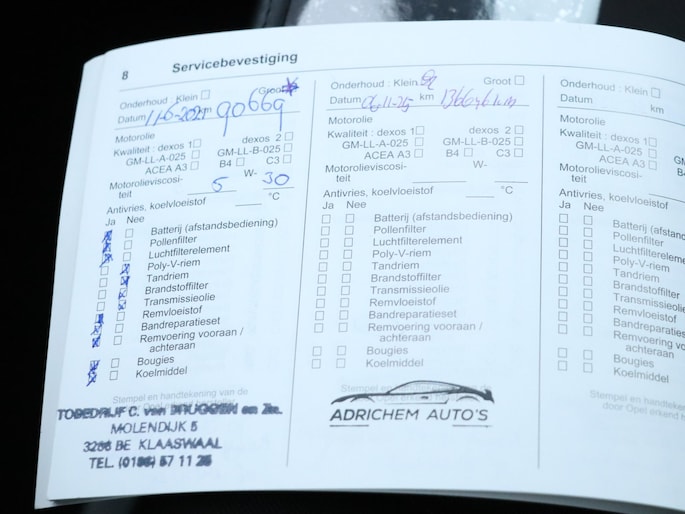 8 Servicebevestiging
Onderhoud : Klein Groot
Datum 11-6-2021 km 90669
Motorolie
Kwaliteit : dexos 1 dexos 2
GM-LL-A-025 GM-LL-B-025
ACEA A3 B4 C3
Motorolieviscosi-
teit 5 W- 30
Antivries, koelvloeistof °C
Ja Nee
Batterij (afstandsbediening)
Pollenfilter
Luchtfilterelement
Poly-V-riem
Tandriem
Brandstoffilter
Transmissieolie
Remvloeistof
Bandreparatieset
Remvoering vooraan /
achteraan
Bougies
Koelmiddel
Stempel en handtekening van de
C. van BRUGGEN en Zn.
MOLENDIJK 5
BE KLAASWAAL
TEL.
Onderhoud : Klein Groot
Datum 06-11-25 km 136646 km
Motorolie
Kwaliteit : dexos 1 dexos 2
GM-LL-A-025 GM-LL-B-025
ACEA A3 B4 C3
Motorolieviscosi-
teit W-
Antivries, koelvloeistof °C
Ja Nee
Batterij (afstandsbediening)
Pollenfilter
Luchtfilterelement
Poly-V-riem
Tandriem
Brandstoffilter
Transmissieolie
Remvloeistof
Bandreparatieset
Remvoering vooraan /
achteraan
Bougies
Koelmiddel
Stempel en handtekening van de
ADRICHEM AUTO'S
Onderhoud : Klein
Datum km
Motorolie
Kwaliteit : dexos 1
GM-LL-A-025
ACEA A3
Motorolieviscosi-
teit
Antivries, koelvloeistof
Ja Nee
Batterij (afstand
Pollenfilter
Luchtfiltereleme
Poly-V-riem
Tandriem
Brandstoffilter
Transmissieolie
Remvloeistof
Bandreparaties
Remvoering vo
achteraan
Bougies
Koelmiddel
Stempel en handtekeni
door Opel erkend b